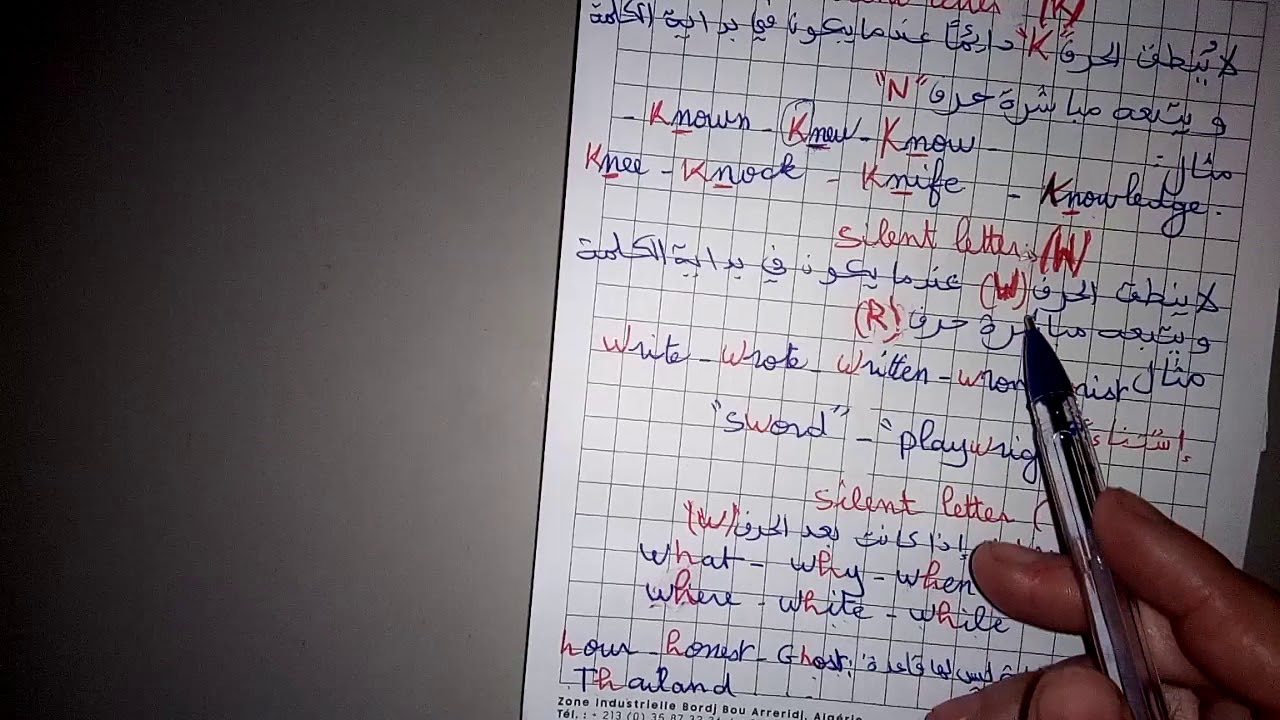 (K)
لا يُنطق الحرف "K" دائمًا عندما يكون في بداية الكلمة
و يتبعه مباشرة حرف "N"
مثال: Know - Knew - Known -
Knee - Knock - Knife - Knowledge.
Silent letter: (W)
لا ينطق الحرف (W) عندما يكون في بداية الكلمة
و يتبعه مباشرة حرف (R)
مثال Write - Wrote - Written -
إستثناء "sword" -
Silent letter (
إذا كانت بعد الحرف (W)
what - why - when
where - white - while
hour - honest - Ghost ليس لها قاعدة:
Thailand
Zone Industrielle Bordj Bou Arreridj, Algérie